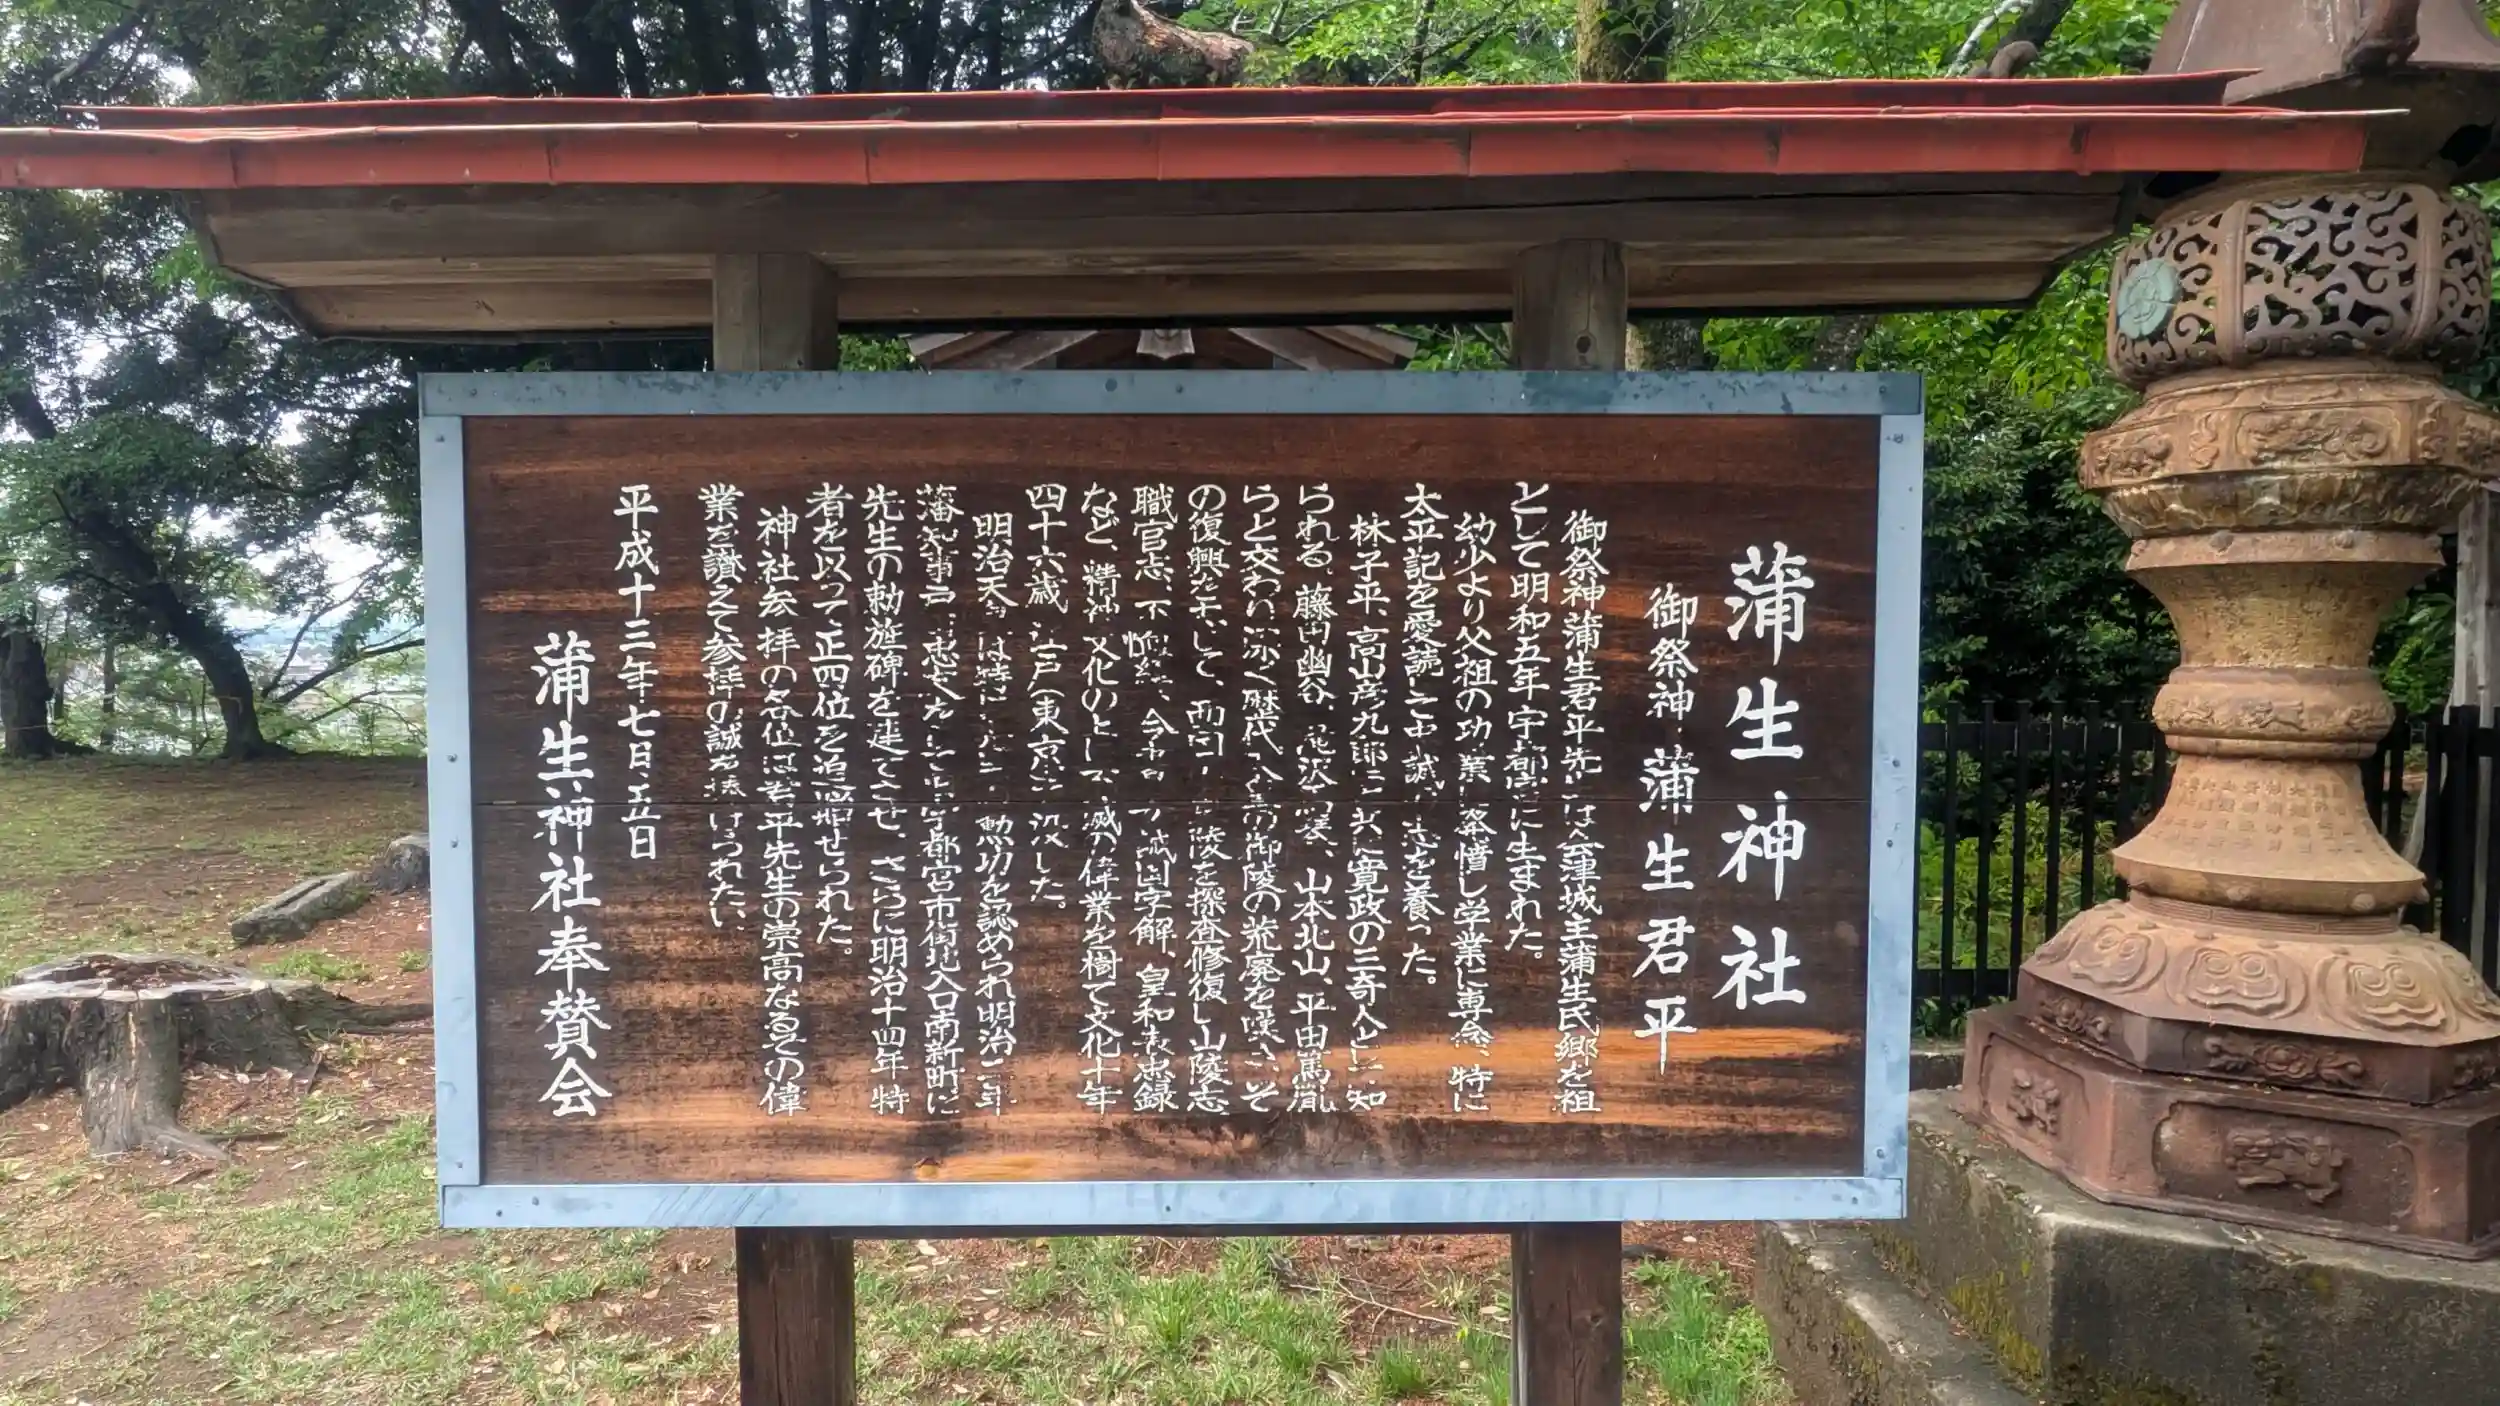 蒲生神社
御祭神 蒲生君平
御祭神蒲生君平先生は会津城主蒲生氏郷を祖
として明和五年宇都宮に生まれた。
幼少より父祖の功業に発憤し学業に専念、特に
太平記を愛読し忠誠の志を養った。
林子平、高山彦九郎と共に寛政の三奇人と知
られる。藤田幽谷、山本北山、平田篤胤
らと交わり深く歴代天皇の御陵の荒廃を嘆き、そ
の復興を志して、陵を探査修復し山陵志
職官志、不恤緯、今書、国字解、皇和表忠録
など、精神文化の不滅の偉業を樹て文化十年
四十六歳江戸(東京)に没した。
明治天皇は特に勲功を認められ明治二年
藩知事戸田忠友をして宇都宮市街地入口南新町に
先生の勅旌碑を建てさせ、さらに明治十四年特
者を以って正四位を追贈せられた。
神社参拝の各位は君平先生の崇高なるその偉
業を讃えて参拝の誠を捧げられたい。
平成十三年七月五日
蒲生神社奉賛会